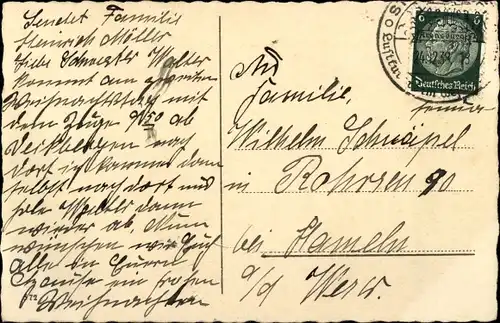 Sendet Familie
Heinrich Müller
Liebe Schwester Walter
kommt am zweiten
Weihnachtstag mit
dem Zuge 9 50 ab
nach
dort ich komme dann
selbst nach dort und
hole Walter dann
wieder ab. Nun
wünschen wir Euch
alle in Eurem
Hause ein frohes
Weihnachten
An
Familie
Wilhelm Schnäpel
in Rohrsen 90
bei Hameln
a/d Weser
6
Deutsches Reich